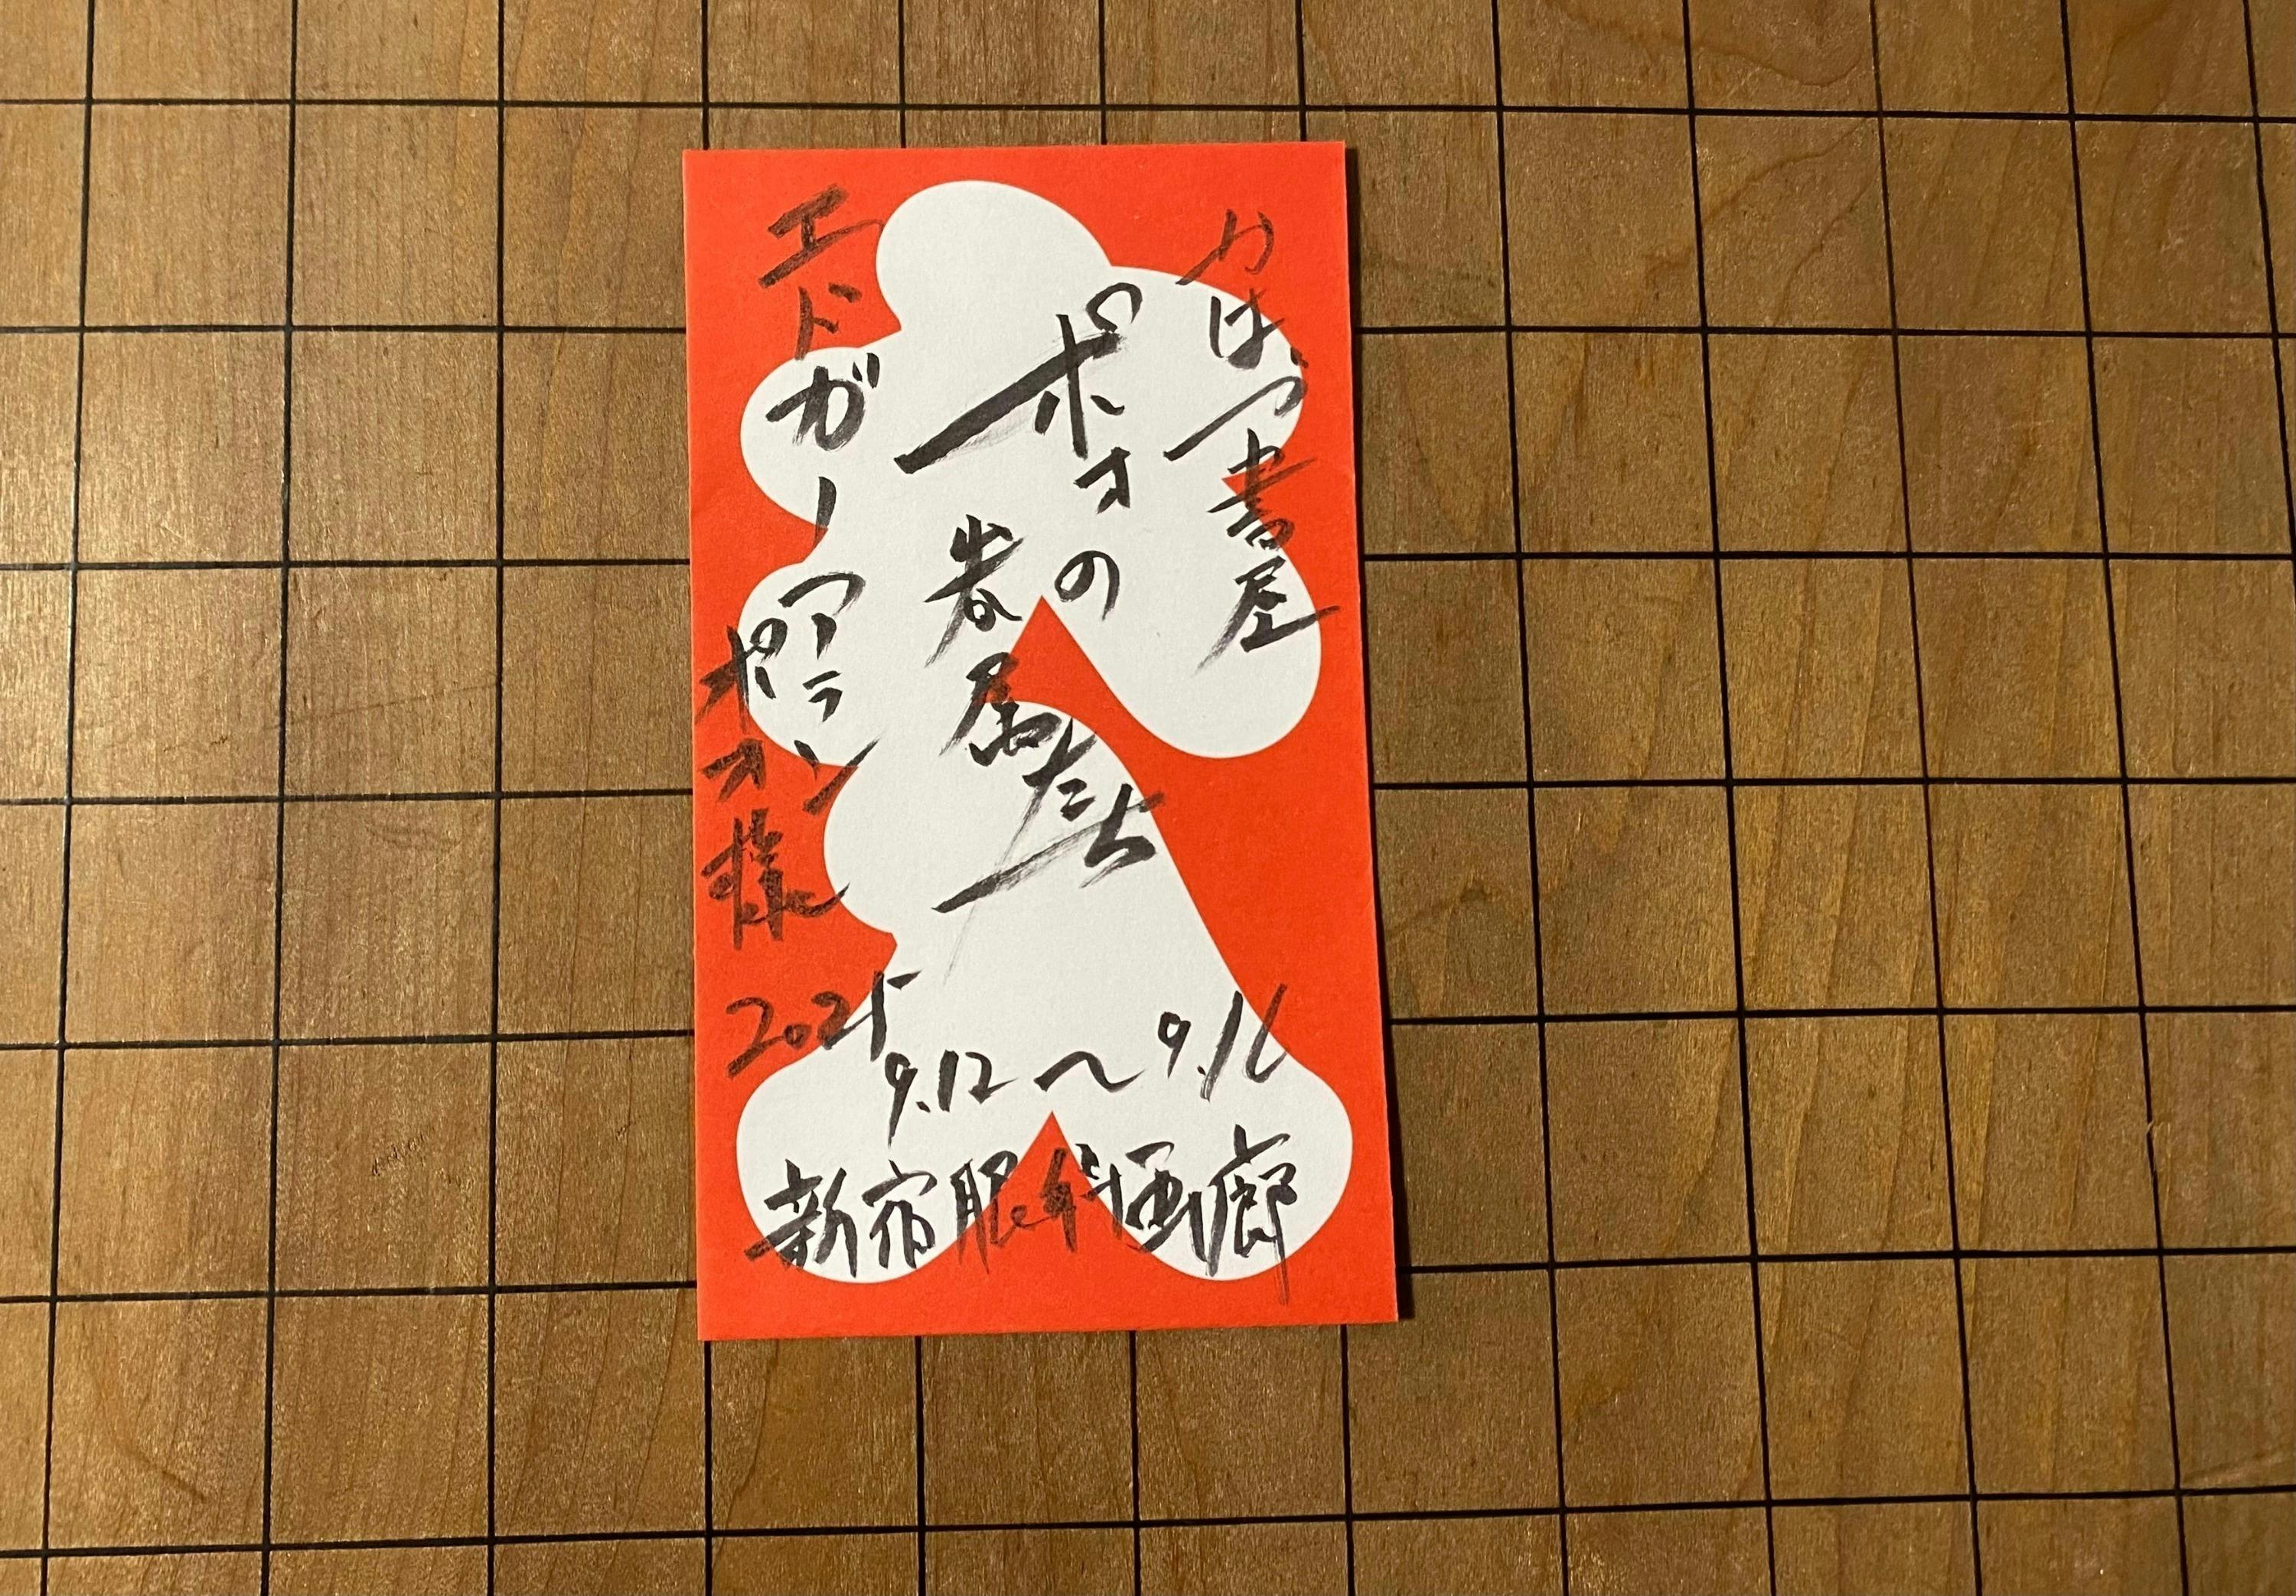 かはづ書屋
ポオの
眷属たち
エドガーアラン
ポオ様
2025
9.12〜9.16
新宿眼科画廊